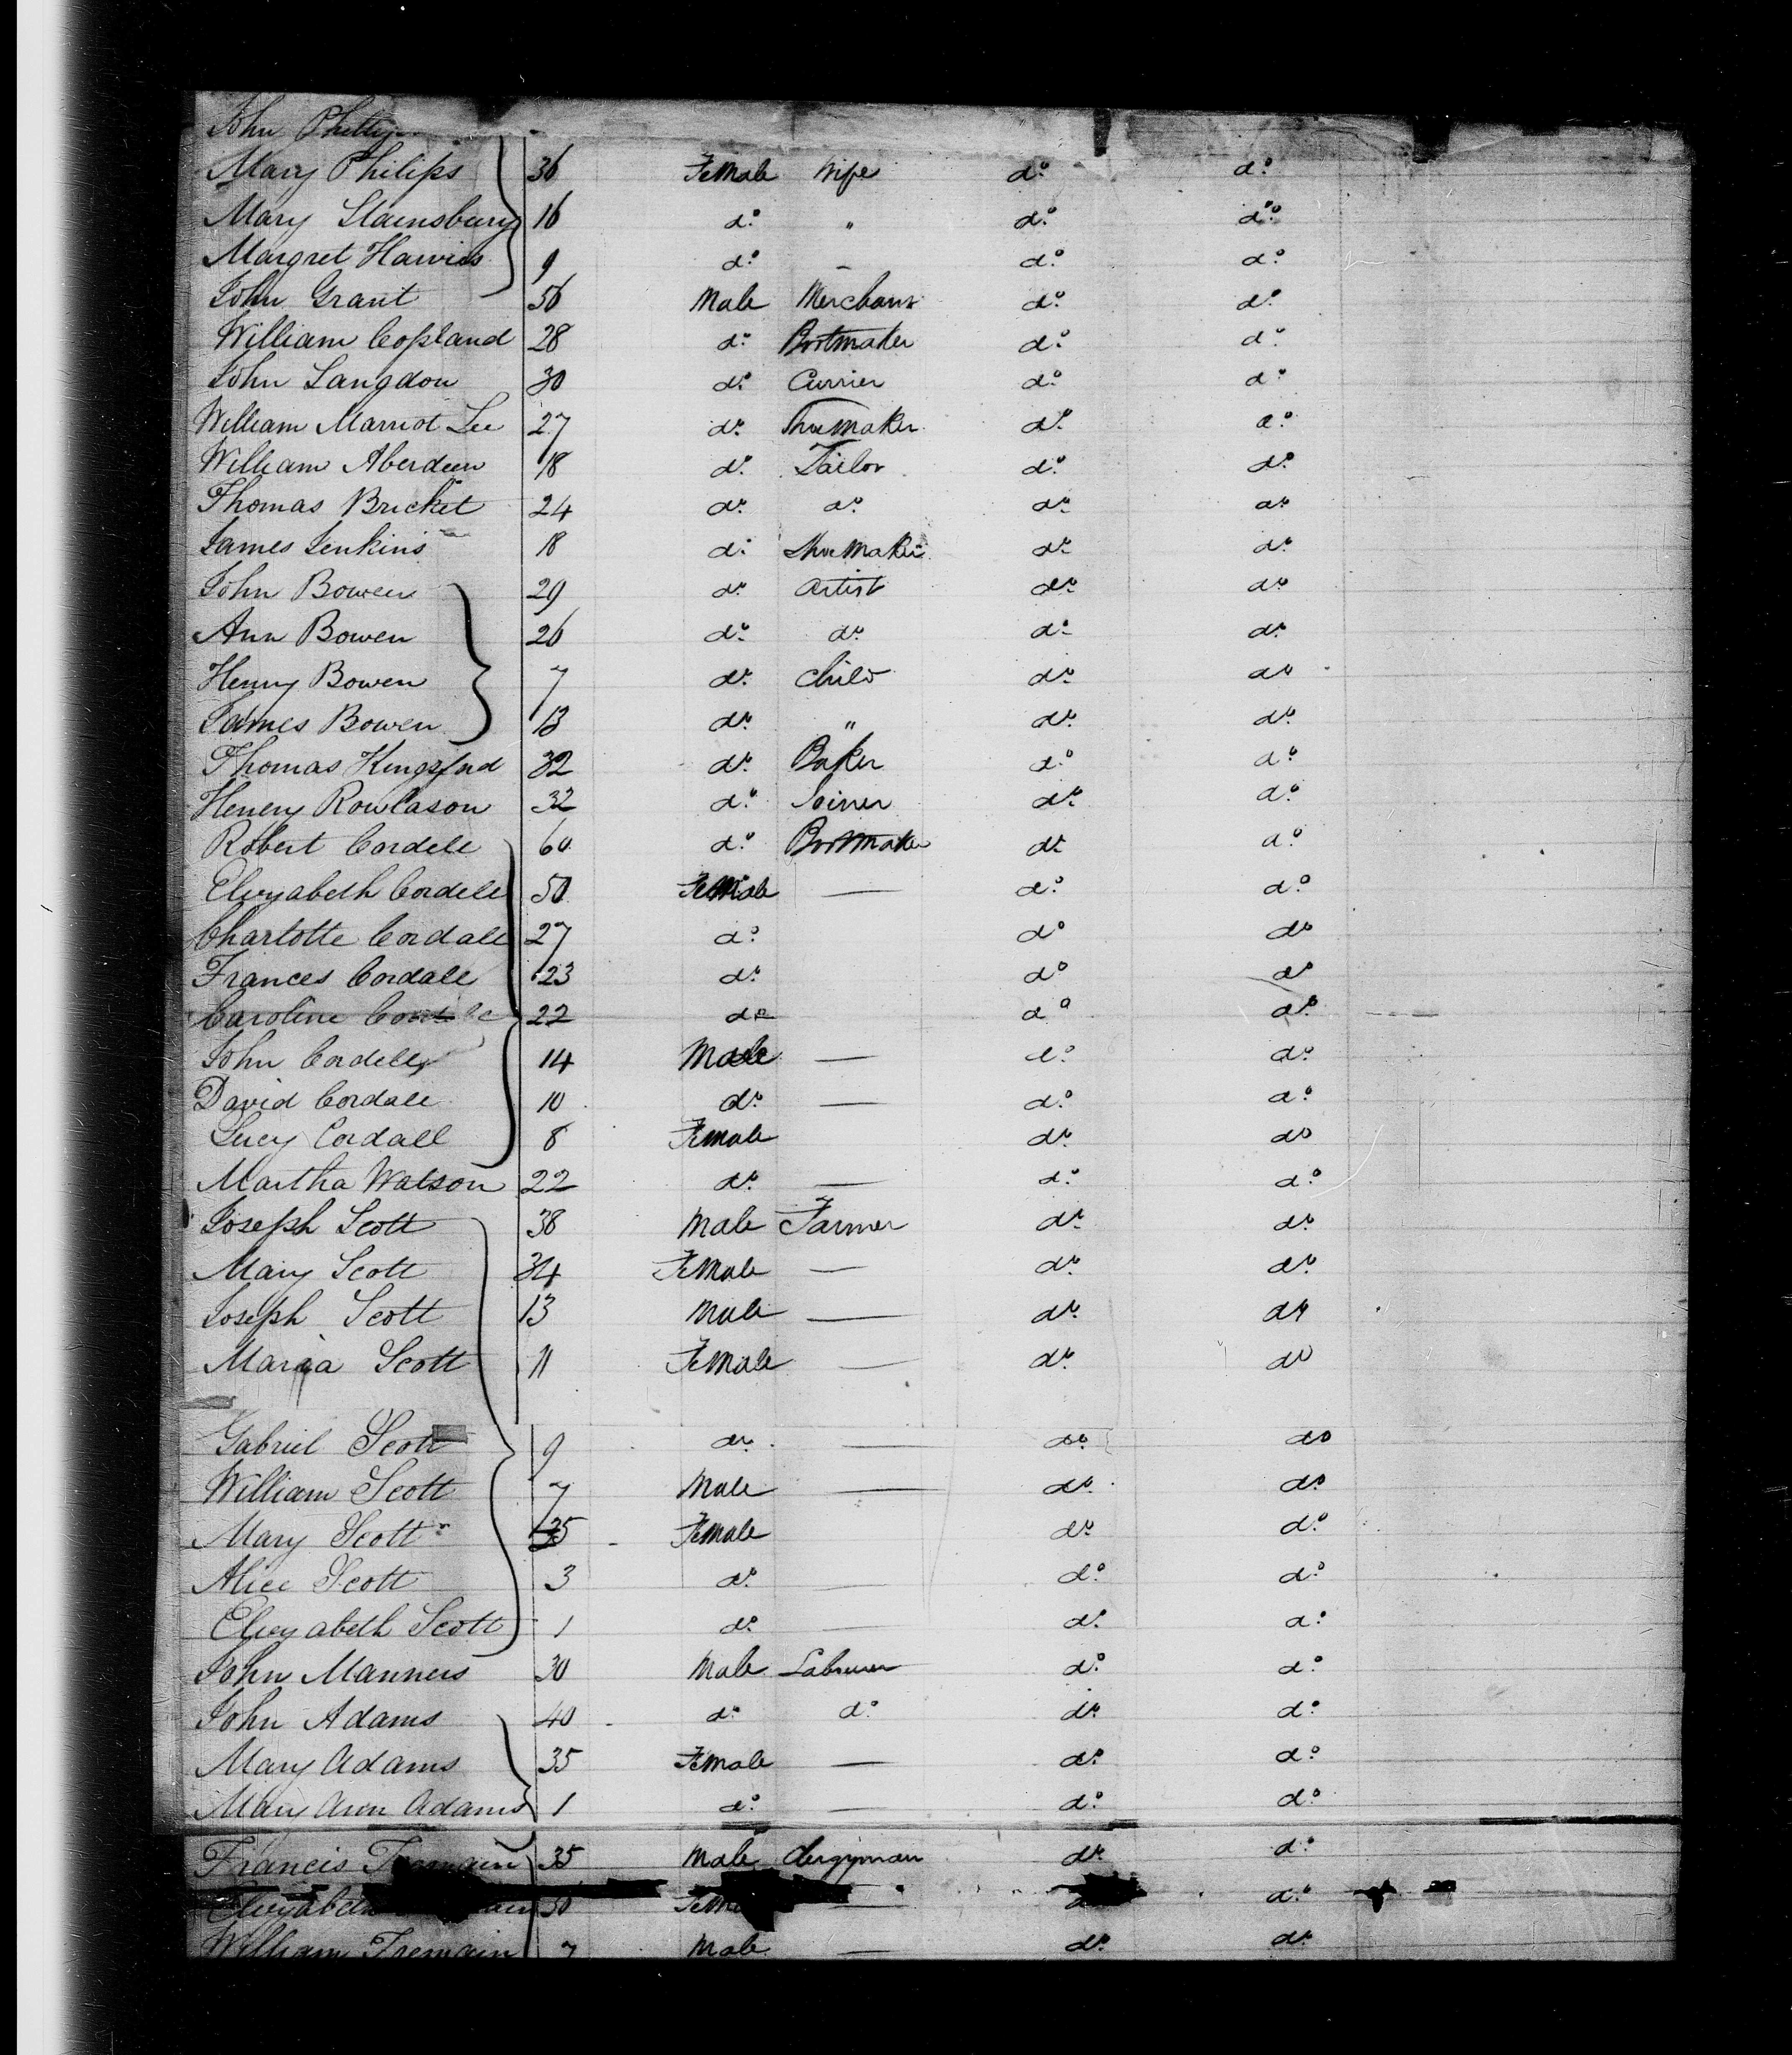 John
Mary Philips 36 Female Wife do. do.
Mary Stainsbury 16 do. " do. do.
Margret Harvies 9 do. — do. do.
John Grant 56 Male Merchant do. do.
William Copland 28 do. Bootmaker do. do.
John Langdon 30 do. Currier do. do.
William Marriot Lee 27 do. Shoemaker do. do.
William Aberdeen 18 do. Tailor do. do.
Thomas Bricket 24 do. do. do. do.
James Jenkins 18 do. Shoemaker do. do.
John Bowen 29 do. Artist do. do.
Ann Bowen 26 do. do. do. do.
Henry Bowen 7 do. Child do. do.
James Bowen 13 do. " do. do.
Thomas Kingsford 32 do. Baker do. do.
Henery Rowlason 32 do. Joiner do. do.
Robert Cordele 60 do. Bootmaker do. do.
Elizyabeth Cordele 50 Female — do. do.
Charlotte Cordall 27 do. do. do.
Frances Cordale 23 do. do. do.
Caroline 22 do. do. do.
John Cordell 14 Male — do. do.
David Cordale 10 do. — do. do.
Lucy Cordall 8 Female do. do.
Martha Watson 22 do. — do. do.
Joseph Scott 38 Male Farmer do. do.
Mary Scott 34 Female — do. do.
Joseph Scott 13 Male — do. do.
Maria Scott 11 Female — do. do.
Gabriel Scott 9 do. — do. do.
William Scott 7 Male — do. do.
Mary Scott Female do. do.
Alice Scott 3 do. — do. do.
Elizyabeth Scott 1 do. — do. do.
John Manners 30 Male Labourer do. do.
John Adams 40 do. do. do. do.
Mary Adams 35 Female — do. do.
Mary Ann Adams 1 do. — do. do.
Francis Tremain 35 Male Clergyman do. do.
30 — do.
William Tremain 7 Male — do. do.